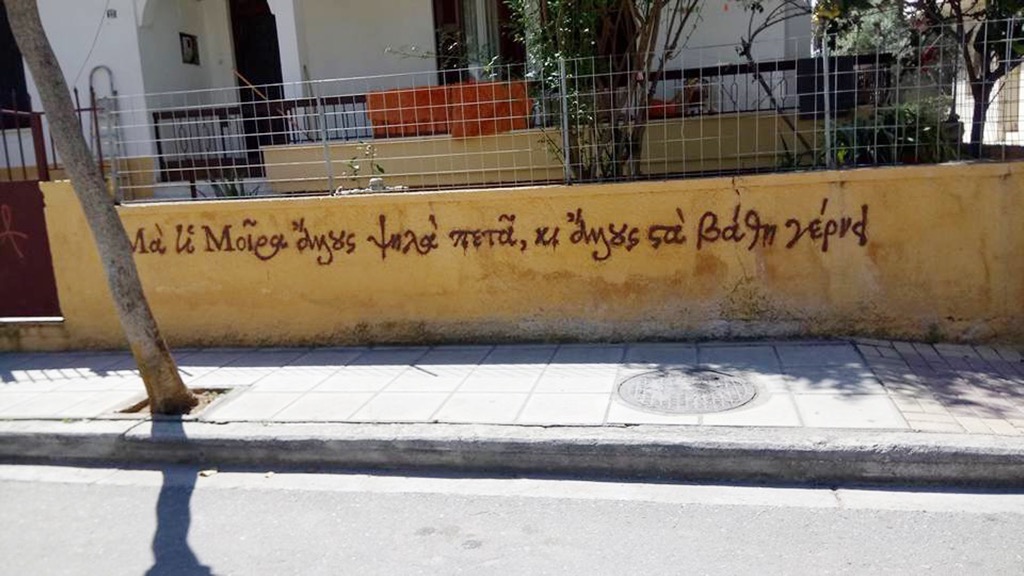 Μὰ ἡ Μοῖρα ἄλλους ψηλὰ πετᾶ, κι ἄλλους στὰ βάθη γέρνει